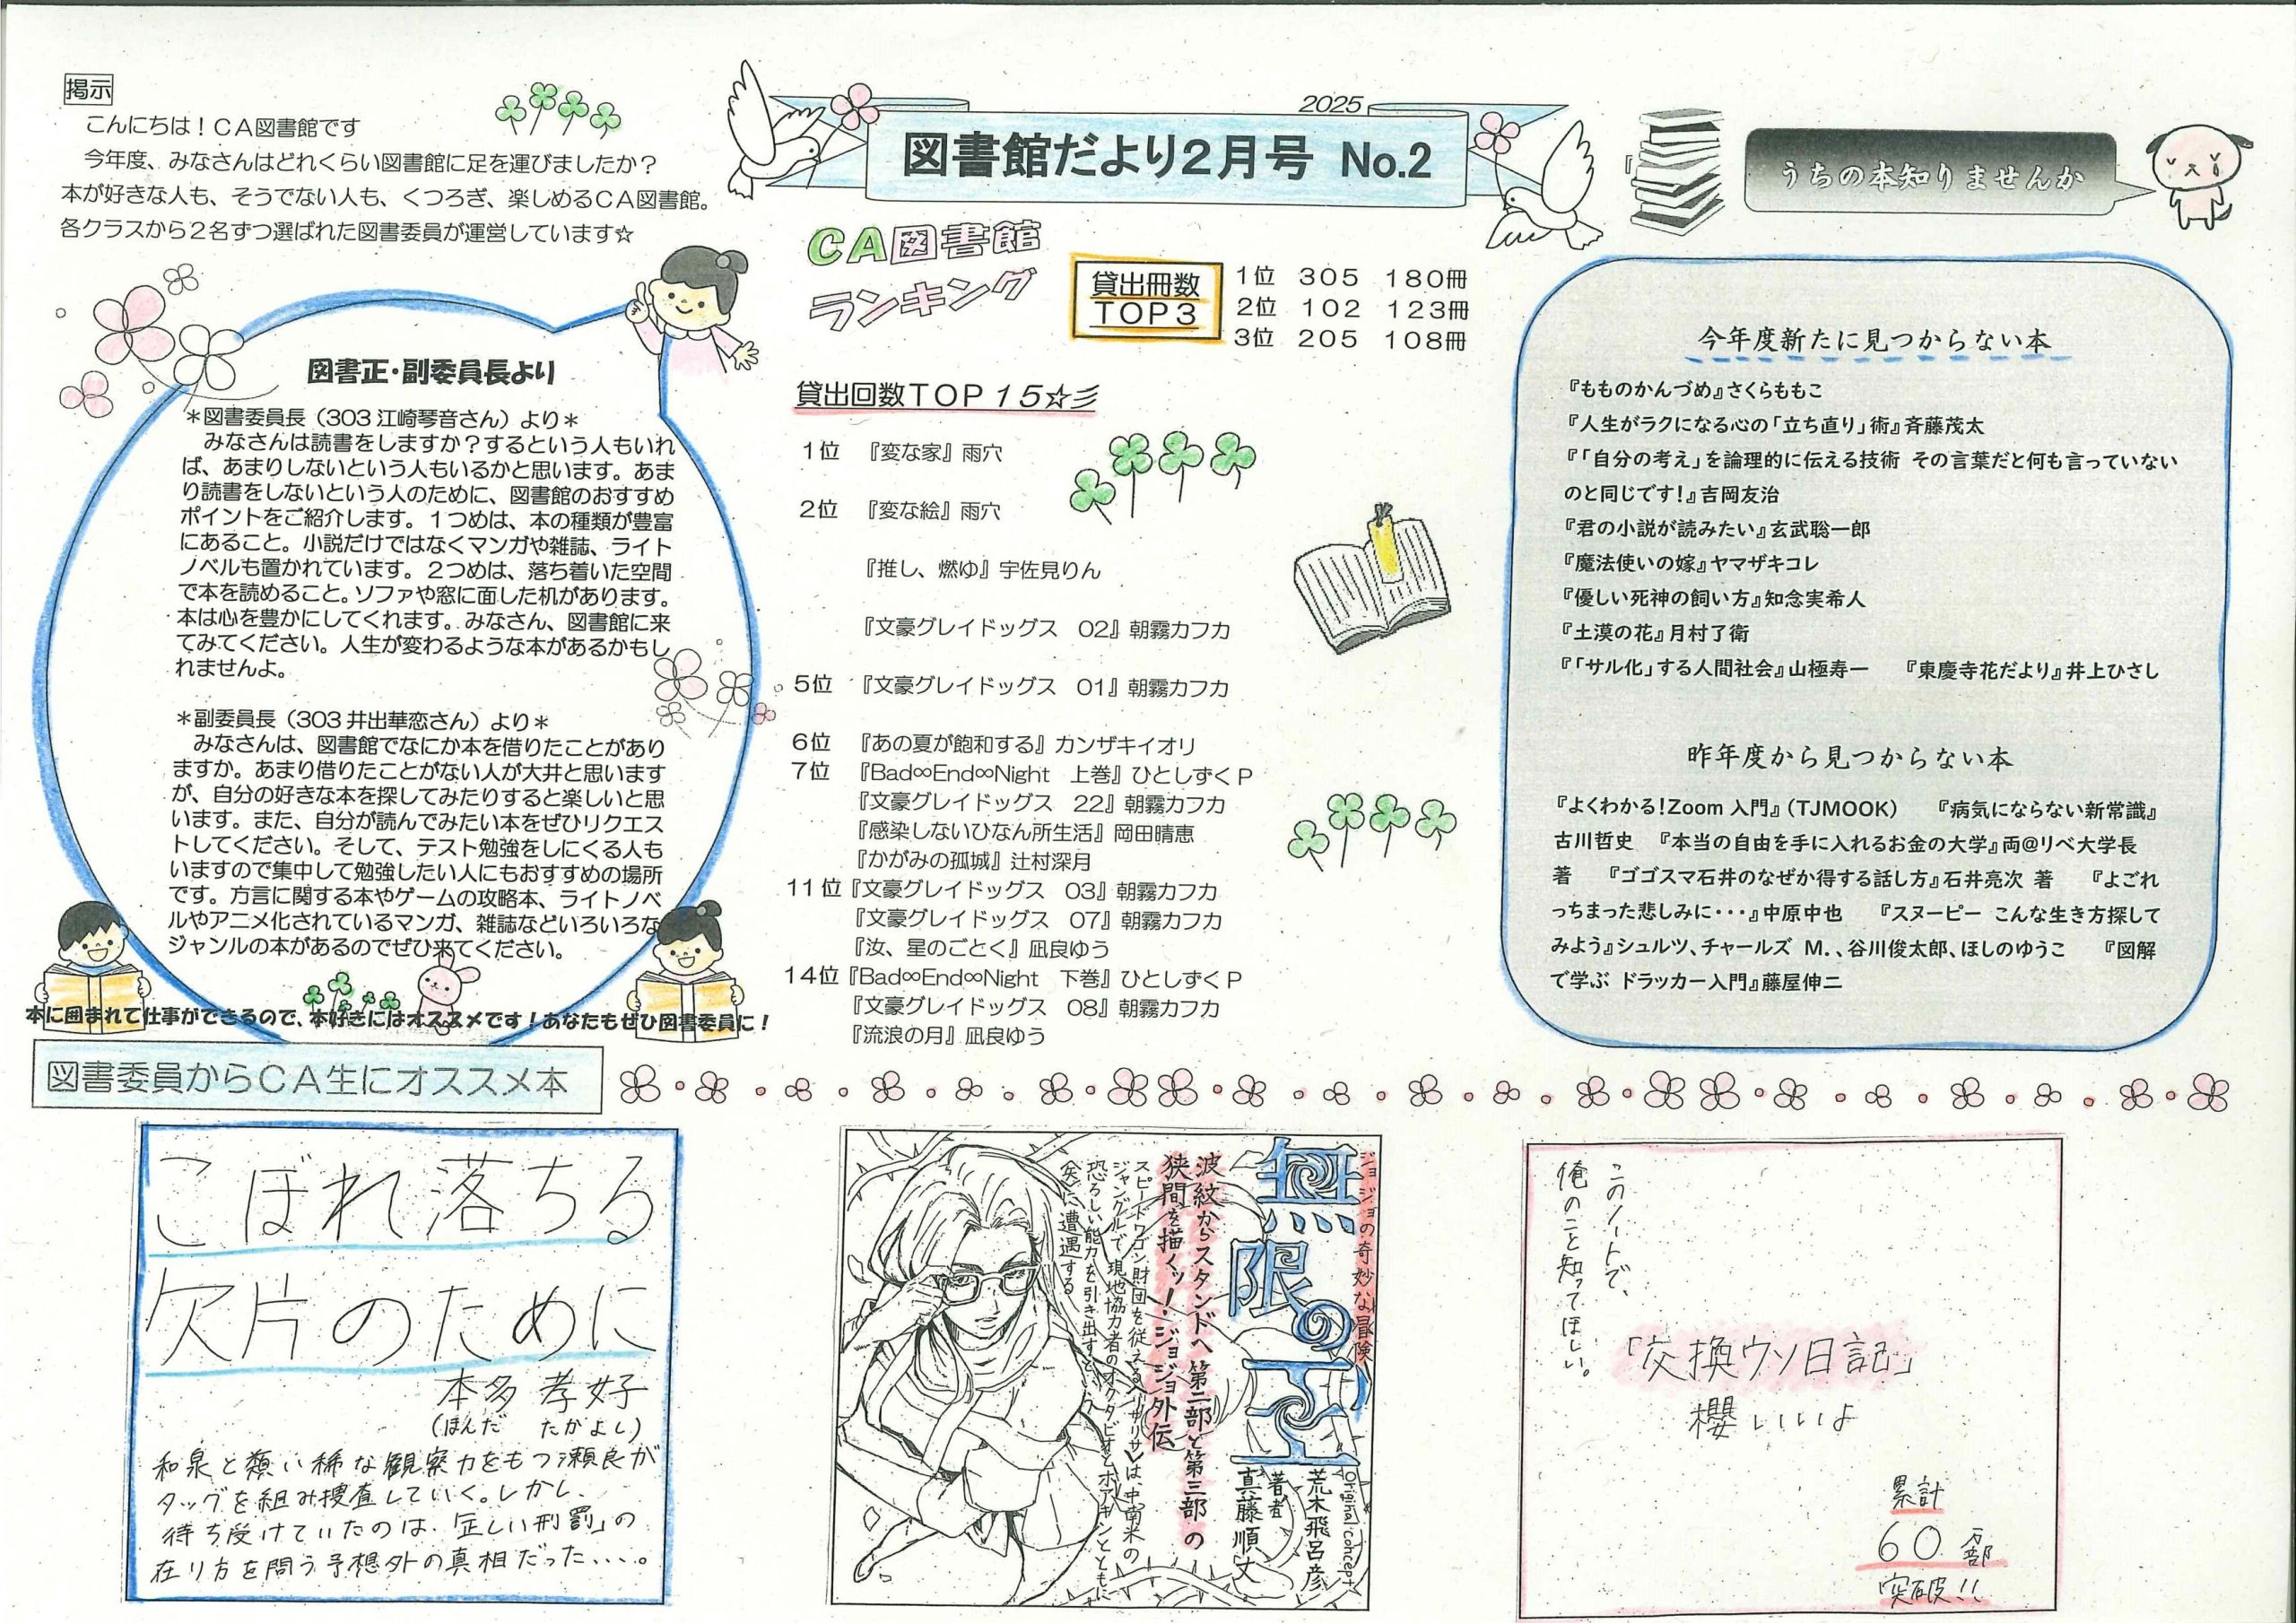 掲示
こんにちは！ＣＡ図書館です
今年度、みなさんはどれくらい図書館に足を運びましたか？
本が好きな人も、そうでない人も、くつろぎ、楽しめるＣＡ図書館。
各クラスから２名ずつ選ばれた図書委員が運営しています☆
2025
図書館だより２月号 No.2
うちの本知りませんか
図書正・副委員長より
＊図書委員長（303 江崎琴音さん）より＊
みなさんは読書をしますか？するという人もいれ
ば、あまりしないという人もいるかと思います。あま
り読書をしないという人のために、図書館のおすすめ
ポイントをご紹介します。１つめは、本の種類が豊富
にあること。小説だけではなくマンガや雑誌、ライト
ノベルも置かれています。２つめは、落ち着いた空間
で本を読めること。ソファや窓に面した机があります。
本は心を豊かにしてくれます。みなさん、図書館に来
てみてください。人生が変わるような本があるかもし
れませんよ。
＊副委員長（303 井出華恋さん）より＊
みなさんは、図書館でなにか本を借りたことがあり
ますか。あまり借りたことがない人が大井と思います
が、自分の好きな本を探してみたりすると楽しいと思
います。また、自分が読んでみたい本をぜひリクエス
トしてください。そして、テスト勉強をしにくる人も
いますので集中して勉強したい人にもおすすめの場所
です。方言に関する本やゲームの攻略本、ライトノベ
ルやアニメ化されているマンガ、雑誌などいろいろな
ジャンルの本があるのでぜひ来てください。
本に囲まれて仕事ができるので、本好きにはオススメです！あなたもぜひ図書委員に！
ＣＡ図書館
ランキング
貸出冊数
ＴＯＰ３
１位　３０５　１８０冊
２位　１０２　１２３冊
３位　２０５　１０８冊
貸出回数ＴＯＰ１５☆彡
１位　『変な家』雨穴
２位　『変な絵』雨穴
『推し、燃ゆ』宇佐見りん
『文豪グレイドッグス　02』朝霧カフカ
５位　『文豪グレイドッグス　01』朝霧カフカ
６位　『あの夏が飽和する』カンザキイオリ
７位　『Bad∞End∞Night　上巻』ひとしずくＰ
『文豪グレイドッグス　22』朝霧カフカ
『感染しないひなん所生活』岡田晴恵
『かがみの孤城』辻村深月
11 位『文豪グレイドッグス　03』朝霧カフカ
『文豪グレイドッグス　07』朝霧カフカ
『汝、星のごとく』凪良ゆう
14 位『Bad∞End∞Night　下巻』ひとしずくＰ
『文豪グレイドッグス　08』朝霧カフカ
『流浪の月』凪良ゆう
今年度新たに見つからない本
『もものかんづめ』さくらももこ
『人生がラクになる心の「立ち直り」術』斉藤茂太
『「自分の考え」を論理的に伝える技術 その言葉だと何も言っていない
のと同じです！』吉岡友治
『君の小説が読みたい』玄武聡一郎
『魔法使いの嫁』ヤマザキコレ
『優しい死神の飼い方』知念実希人
『土漠の花』月村了衛
『「サル化」する人間社会』山極寿一　　『東慶寺花だより』井上ひさし
昨年度から見つからない本
『よくわかる！Zoom 入門』（TJMOOK）　　『病気にならない新常識』
古川哲史　『本当の自由を手に入れるお金の大学』両＠リベ大学長
著　　『ゴゴスマ石井のなぜか得する話し方』石井亮次 著　　『よごれ
っちまった悲しみに・・・』中原中也　　『スヌーピー こんな生き方探して
みよう』シュルツ、チャールズ M.、谷川俊太郎、ほしのゆうこ　　『図解
で学ぶ ドラッカー入門』藤屋伸二
図書委員からＣＡ生にオススメ本
こぼれ落ちる
欠片のために
本多 孝好
(ほんだ たかよし)
和泉と類い稀な観察力をもつ瀬良が
タッグを組み捜査していく。しかし、
待ち受けていたのは、「正しい刑罰」の
在り方を問う予想外の真相だった、、、。
ジョジョの奇妙な冒険
無限の王
Original concept
荒木飛呂彦
著者
真藤順丈
波紋からスタンドへ 第二部と第三部の
狭間を描くッ！ジョジョ外伝
スピードワゴン財団を従えるリサリサは、中南米の
ジャングルで、現地協力者のオクタビオとホアキンとともに
恐ろしい能力を引き出すという
〈矢〉に遭遇する
このノートで、
俺のこと知ってほしい。
「交換ウソ日記」
櫻いいよ
累計
60万部
突破!!